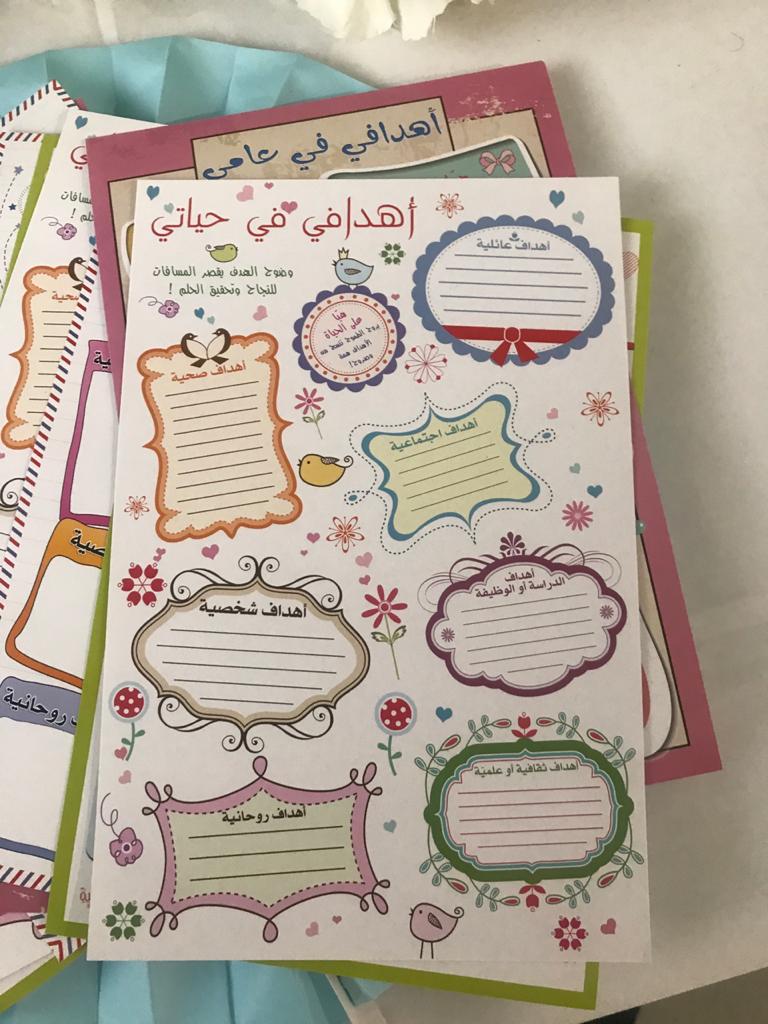 أهدافي في عامي
أهدافي في حياتي
وضوح الهدف يقصر المسافات
للنجاح وتحقيق الحلم !
أهداف عائلية
هيّا
على الحياة
أهداف صحية
أهداف اجتماعية
أهداف شخصية
أهداف
الدراسة أو الوظيفة
أهداف روحانية
أهداف ثقافية أو علمية
صحية
روحانية